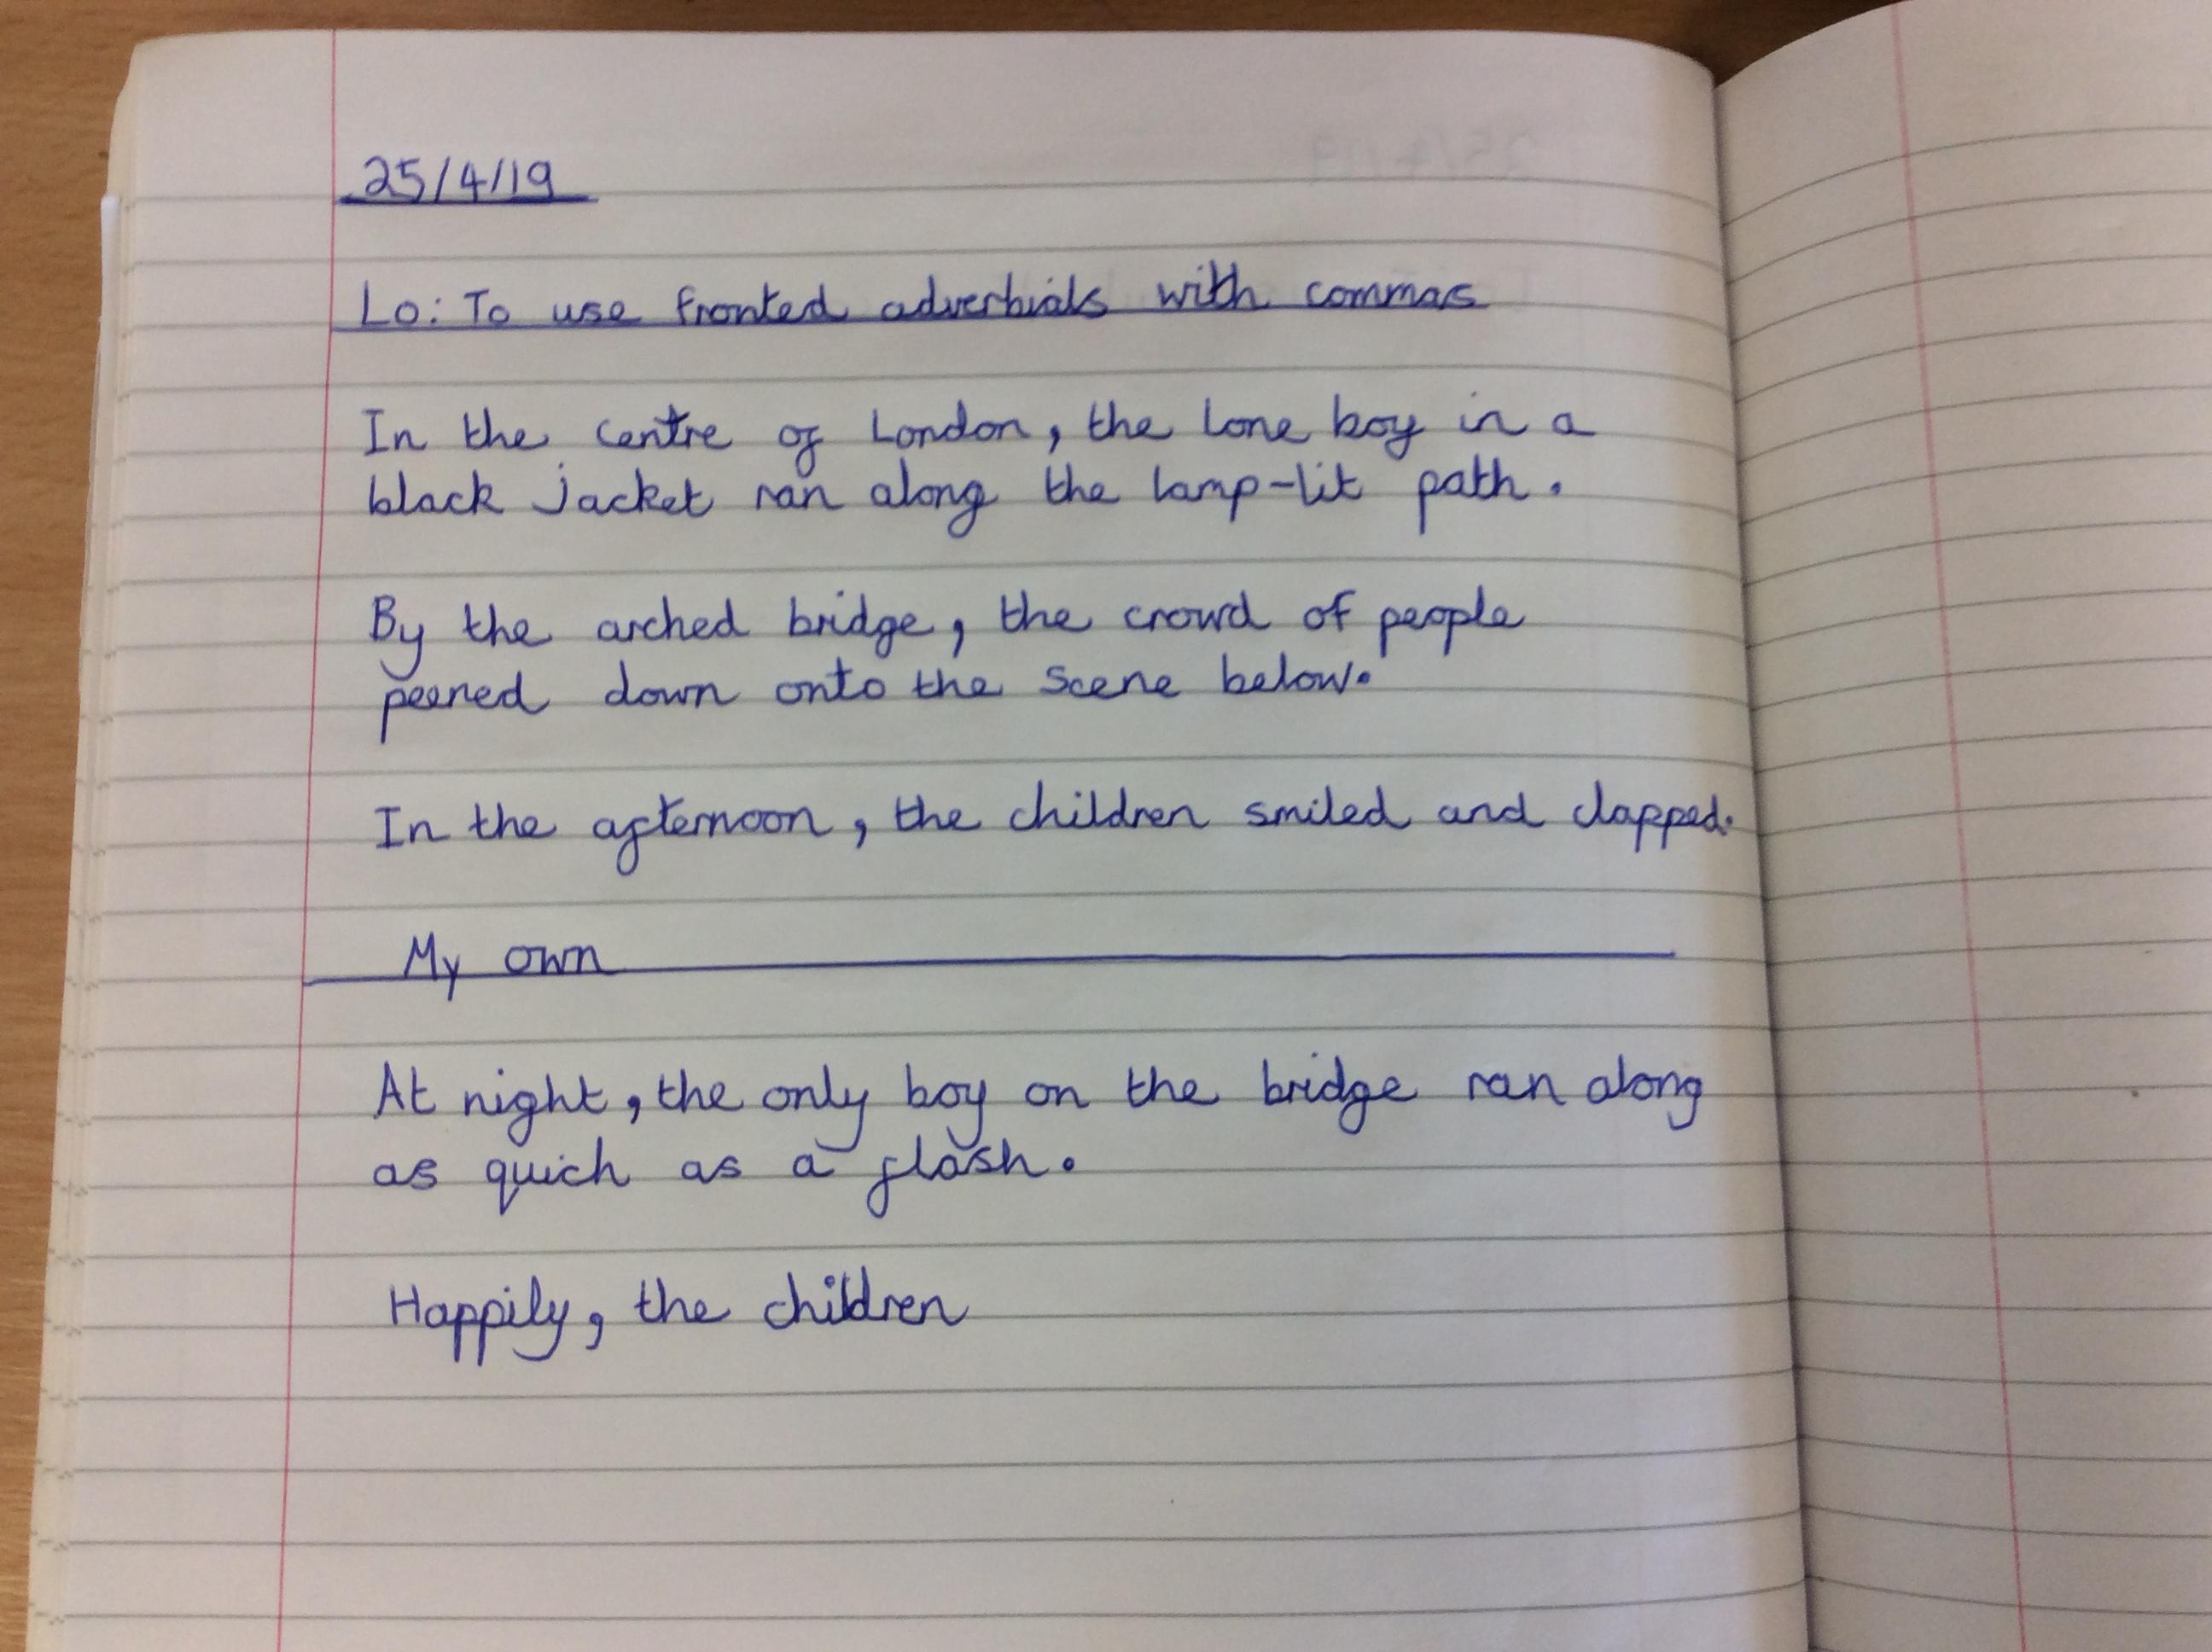 25/4/19
Lo: To use fronted adverbials with commas
In the centre of London, the lone boy in a
black jacket ran along the lamp-lit path.
By the arched bridge, the crowd of people
peered down onto the scene below.
In the afternoon, the children smiled and clapped.
My own
At night, the only boy on the bridge ran along
as quick as a flash.
Happily, the children